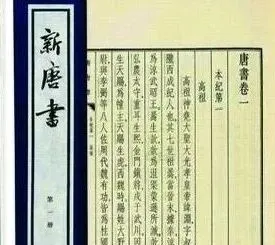 新唐书
第一册
唐書卷一
本紀第一
高祖
高祖神堯大聖大光孝皇帝諱淵字叔
隴西成紀人也其七世祖暠當晉末據秦涼
為涼武昭王暠生歆歆為沮渠蒙遜所滅
弘農太守重耳生熙金門鎮將戍于武川因
生天賜為幢主天賜生虎西魏時賜姓大野
尉與李弼等八人佐周代魏有功皆為柱國